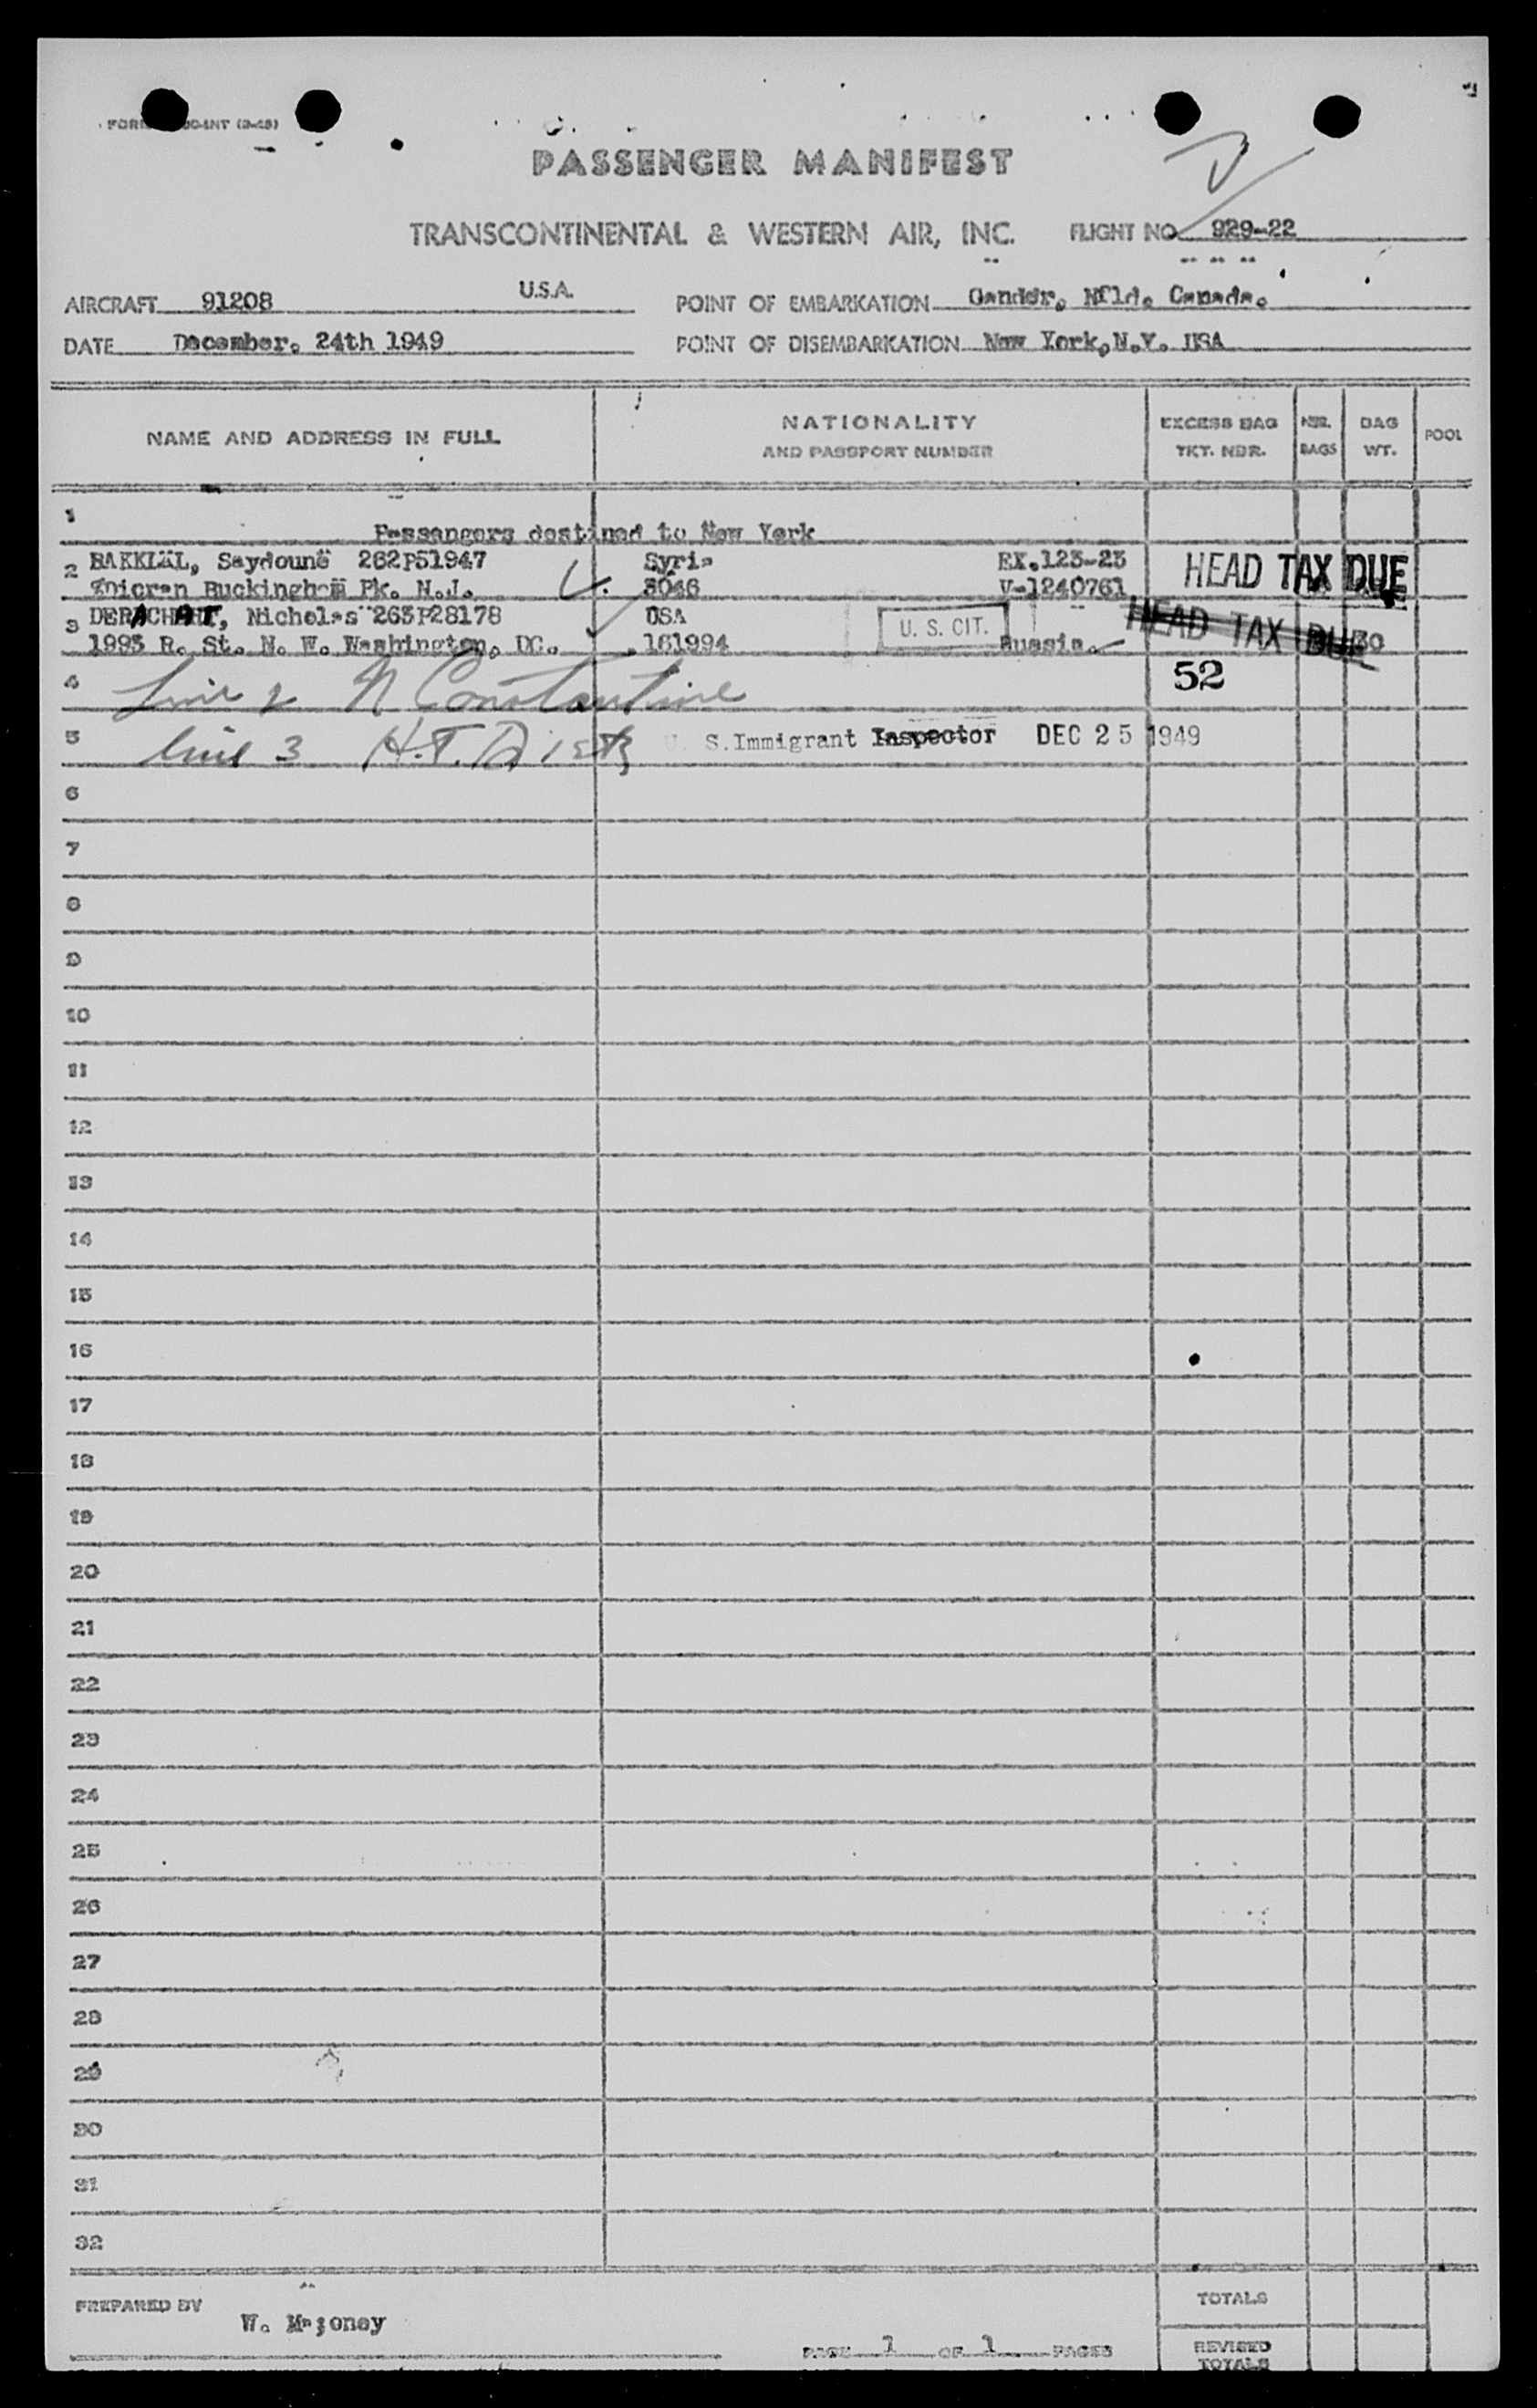 PASSENGER MANIFEST
TRANSCONTINENTAL & WESTERN AIR, INC. FLIGHT NO. 929-22
AIRCRAFT 91208 U.S.A. POINT OF EMBARKATION Gander, Nfld. Canada.
DATE December. 24th 1949 POINT OF DISEMBARKATION New York, N.Y. USA
NAME AND ADDRESS IN FULL
NATIONALITY
AND PASSPORT NUMBER
EXCESS BAG
TKT. NBR.
NBR.
BAGS
BAG
WT.
POOL
1 Passengers destined to New York
2 BAKKLAL, Saydoune 262P51947 Syria EX.123-23 HEAD TAX DUE
Buckingham Pk. N.J. 3046 V-1240761
3 DERACHAT, Nicholas 263P28178 USA U. S. CIT. HEAD TAX DUE
1993 R. St. N. W. Washington, DC. 161994 Russia.
4 Line 2 N Constantine 52
5 Line 3 H.F. U. S. Immigrant Inspector DEC 25 1949
6
7
8
9
10
11
12
13
14
15
16
17
18
19
20
21
22
23
24
25
26
27
28
29
30
31
32
PREPARED BY W.
TOTALS
PAGE 1 OF 1 PAGES
REVISED
TOTALS